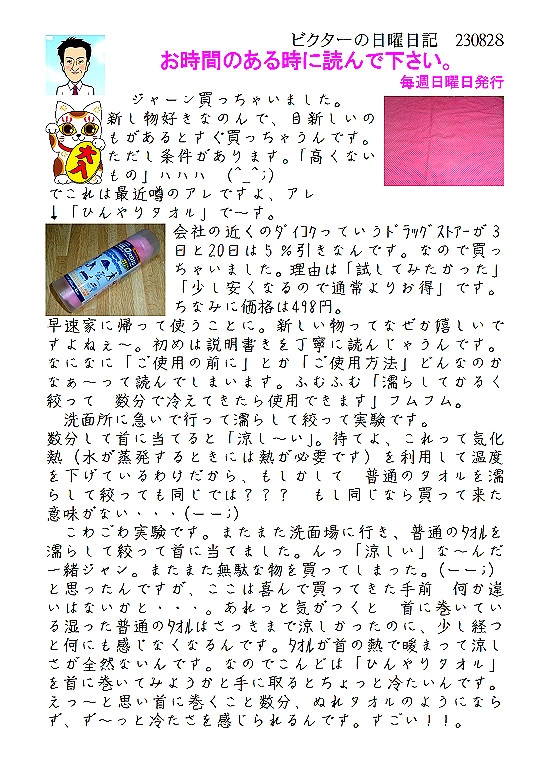 ビクターの日曜日記 230828
お時間のある時に読んで下さい。
毎週日曜日発行
ジャーン買っちゃいました。
新し物好きなので、目新しいの
もがあるとすぐ買っちゃうんです。
ただし条件があります。「高くない
もの」ハハハ (^_^;)
でこれは最近噂のアレですよ、アレ
↓「ひんやりタオル」で〜す。
会社の近くのダイコクっていうドラッグストアーが3
日と20日は5%引きなんです。なので買っ
ちゃいました。理由は「試してみたかった」
「少し安くなるので通常よりお得」です。
ちなみに価格は498円。
早速家に帰って使うことに。新しい物ってなぜか嬉しいで
すよねぇ〜。初めは説明書きを丁寧に読んじゃうんです。
なになに「ご使用の前に」とか「ご使用方法」どんなのか
なぁ〜って読んでしまいます。ふむふむ「濡らしてかるく
絞って 数分で冷えてきたら使用できます」フムフム。
洗面所に急いで行って濡らして絞って実験です。
数分して首に当てると「涼し〜い」。待てよ、これって気化
熱(水が蒸発するときには熱が必要です)を利用して温度
を下げているわけだから、もしかして 普通のタオルを濡
らして絞っても同じでは??? もし同じなら買って来た
意味がない・・・(ーー;)
こわごわ実験です。またまた洗面場に行き、普通のタオルを
濡らして絞って首に当てました。んっ「涼しい」な〜んだ
一緒ジャン。またまた無駄な物を買ってしまった。(ーー;)
と思ったんですが、ここは喜んで買ってきた手前 何か違
いはないかと・・・。あれっと気がつくと 首に巻いてい
る湿った普通のタオルはさっきまで涼しかったのに、少し経つ
と何にも感じなくなるんです。タオルが首の熱で暖まって涼し
さが全然ないんです。なのでこんどは「ひんやりタオル」
を首に巻いてみようかと手に取るとちょっと冷たいんです。
えっ〜と思い首に巻くこと数分、ぬれタオルのようになら
ず、ず〜っと冷たさを感じられるんです。すごい!!。